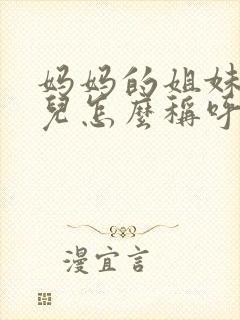 妈妈的姐妹
兒怎麼稱呼
漫宜言